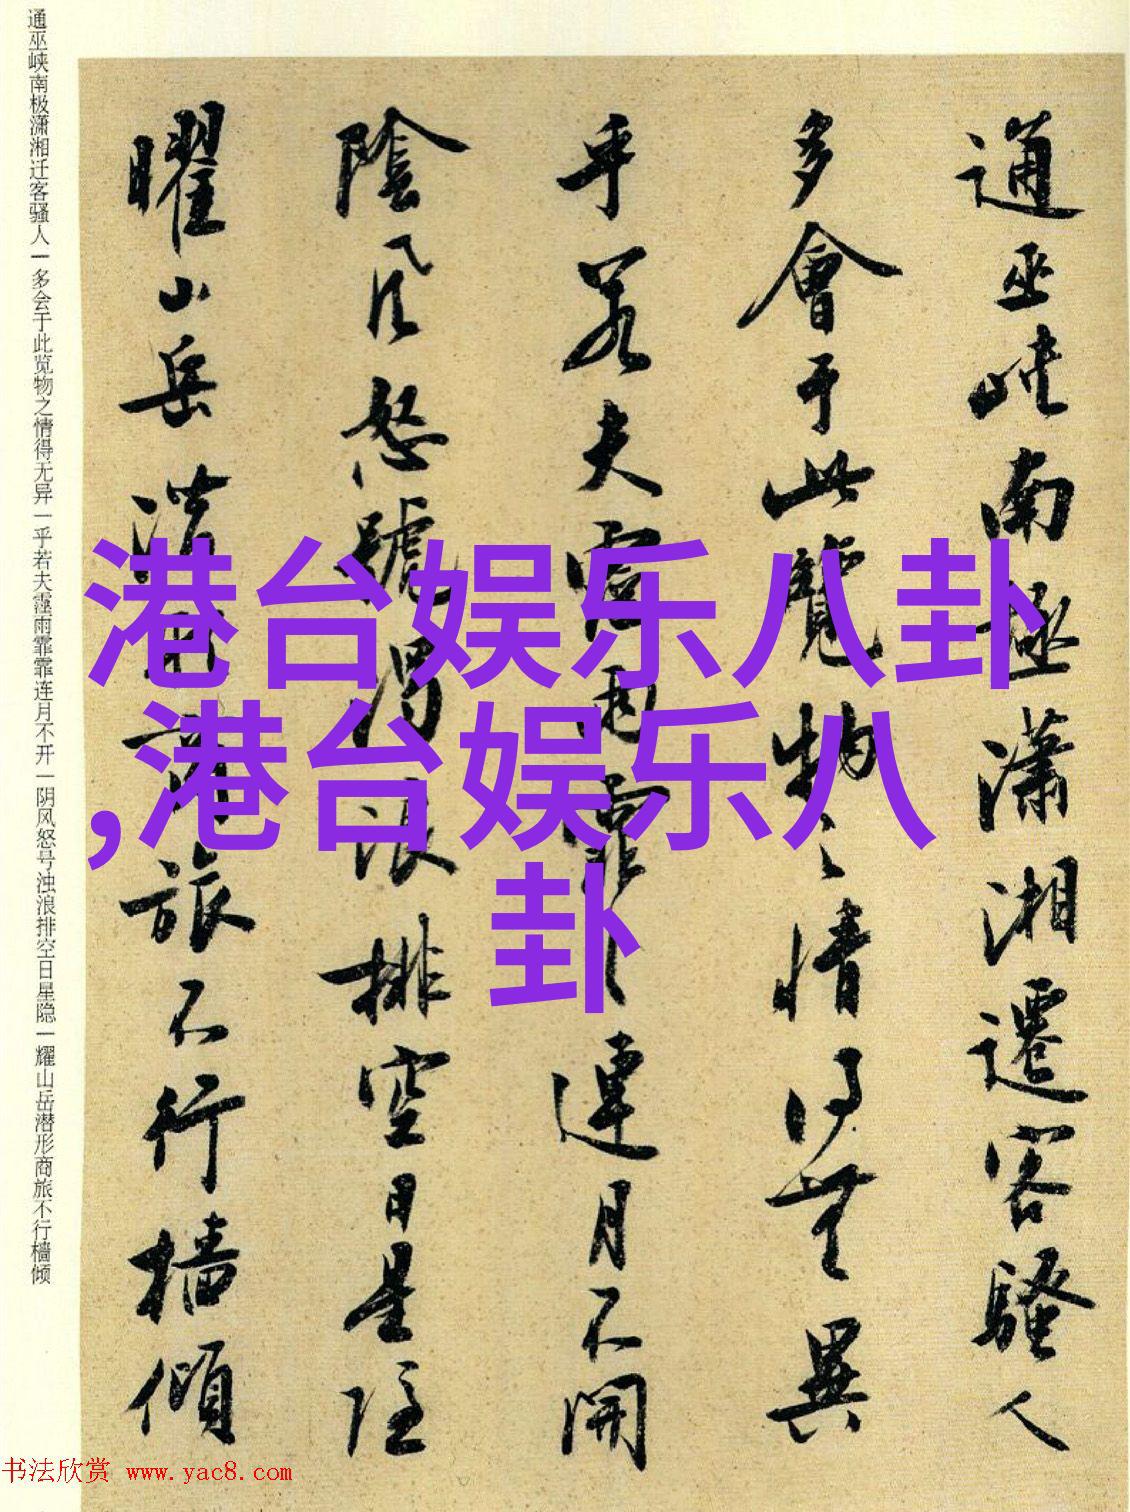 通巫峡南极潇湘迁客骚人一多会于此览物之情得无异一乎若夫霪雨霏霏连月不开一阴风怒号浊浪排空日星隐一耀山岳潜形商旅不行樯倾
通巫峽南極瀟湘遷客騷人
多會于此覽物之情得無異
乎若夫霪雨霏〻連月不開
陰風怒號濁浪排空日星隱
曜山岳潛形商旅不行檣傾
港台娱乐八卦
,港台娱乐八
卦
书法欣赏 www.yac8.com